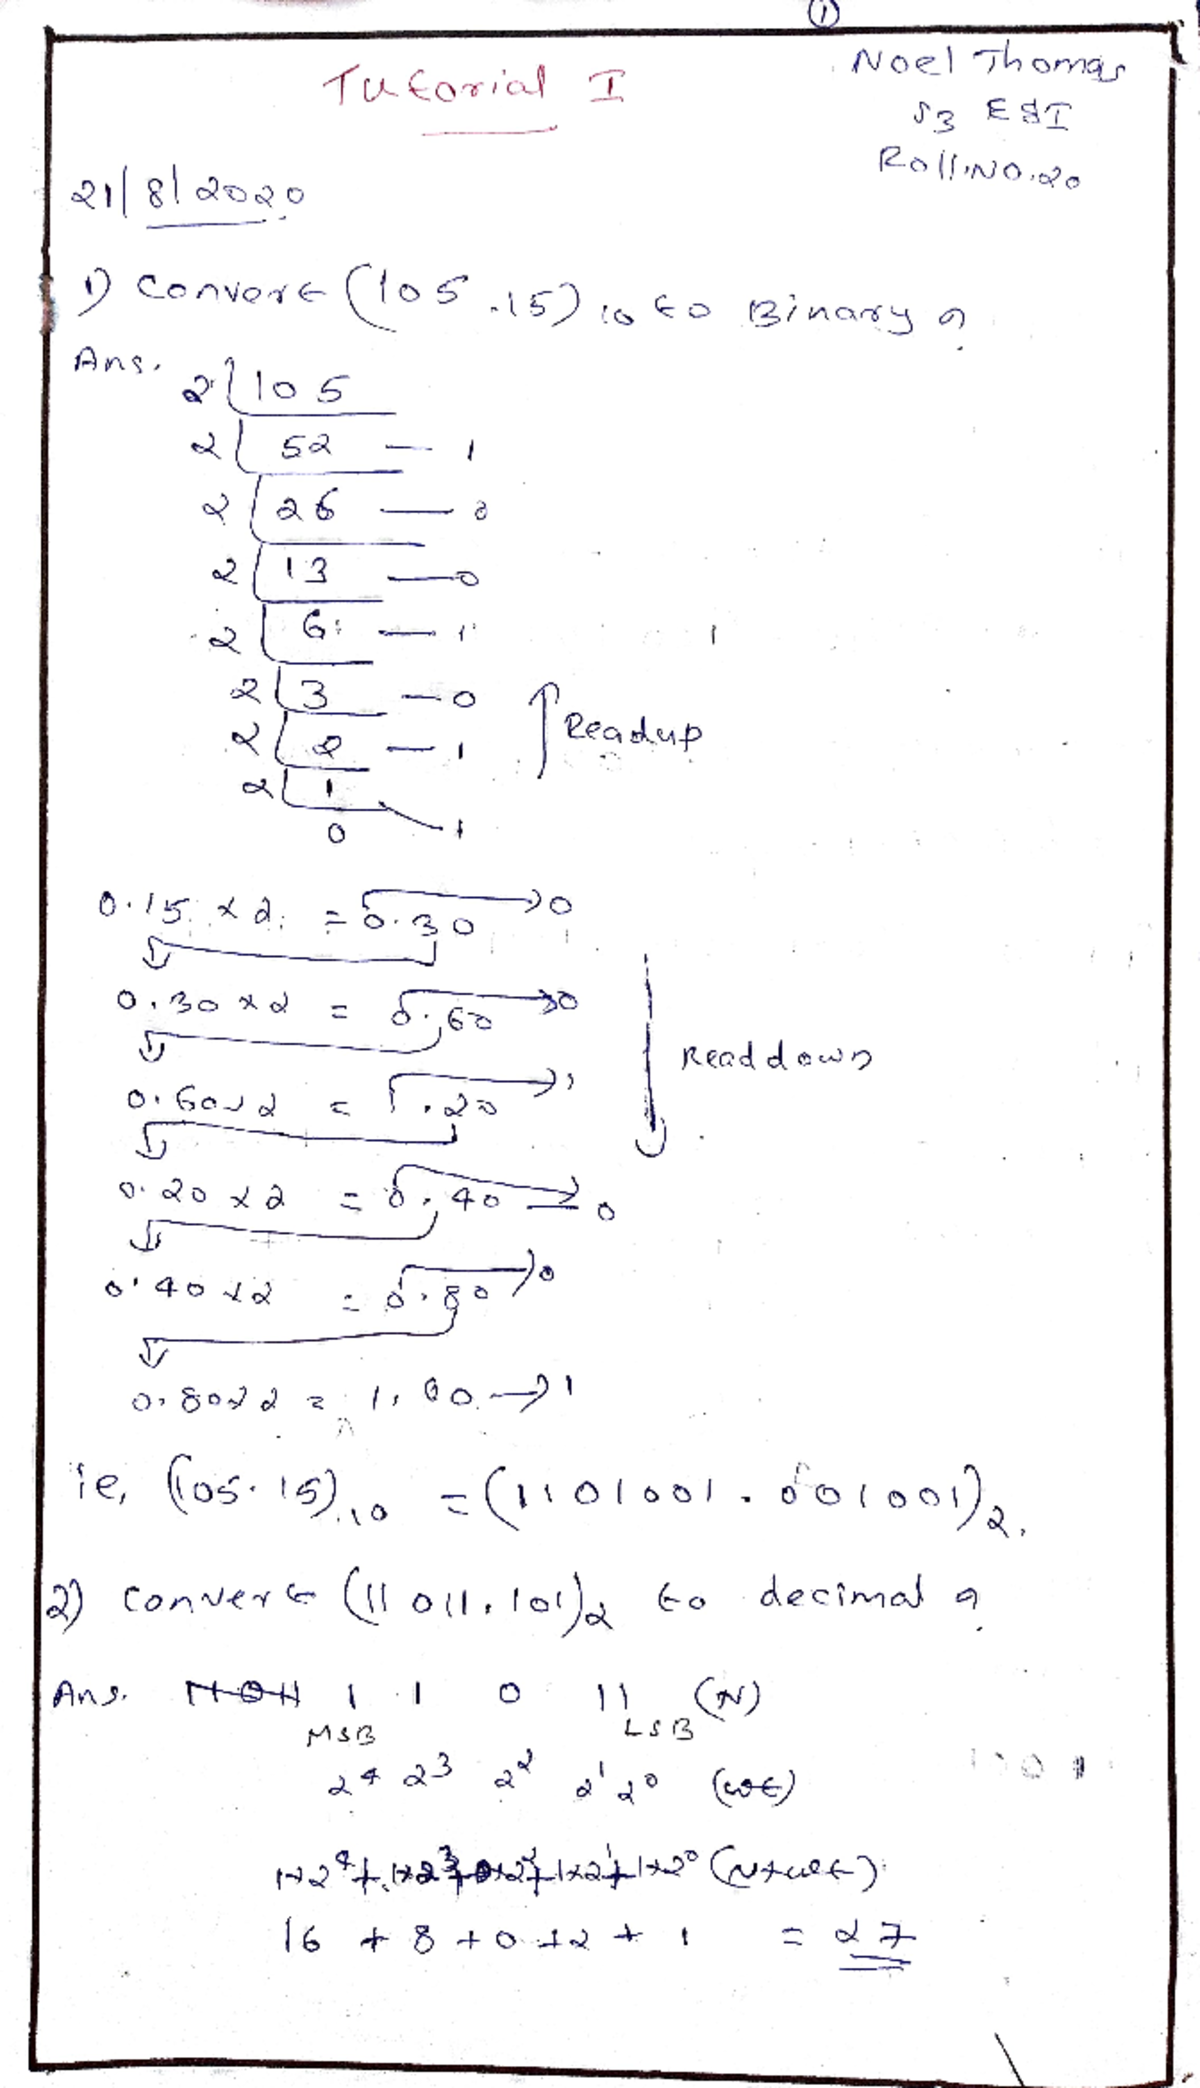 ①
Tutorial I
Noel Thomas
S3 E&I
Roll.NO.20
21/8/2020
1) Convert (105.15)10 to Binary ?
Ans.
2 | 105
2 | 52 — 1
2 | 26 — 0
2 | 13 — 0
2 | 6 — 1
2 | 3 — 0
2 | 2 — 1
2 | 1
0 — 1
↑ Readup
0.15 × 2 = 0.30 → 0
0.30 × 2 = 0.60 → 0
0.60 × 2 = 1.20 → 1
0.20 × 2 = 0.40 → 0
0.40 × 2 = 0.80 → 0
0.80 × 2 = 1.60 → 1
↓ Read down
ie, (105.15)10 = (1101001.001001)2.
2) Convert (11011.101)2 to decimal ?
Ans. 1 1 0 1 1 (N)
MSB LSB
2⁴ 2³ 2² 2¹ 2⁰ (wt)
1×2⁴+1×2³+0×2²+1×2¹+1×2⁰ (N×wt)
16 + 8 + 0 + 2 + 1 = 27